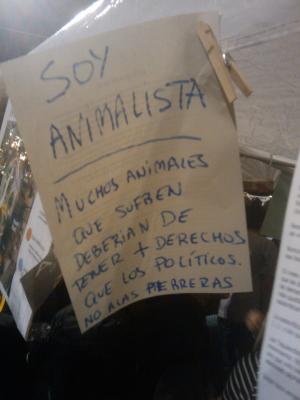 SOY
ANIMALISTA
MUCHOS ANIMALES
QUE SUFREN
DEBERIAN DE
TENER + DERECHOS
QUE LOS POLÍTICOS.
NO A LAS PERRERAS